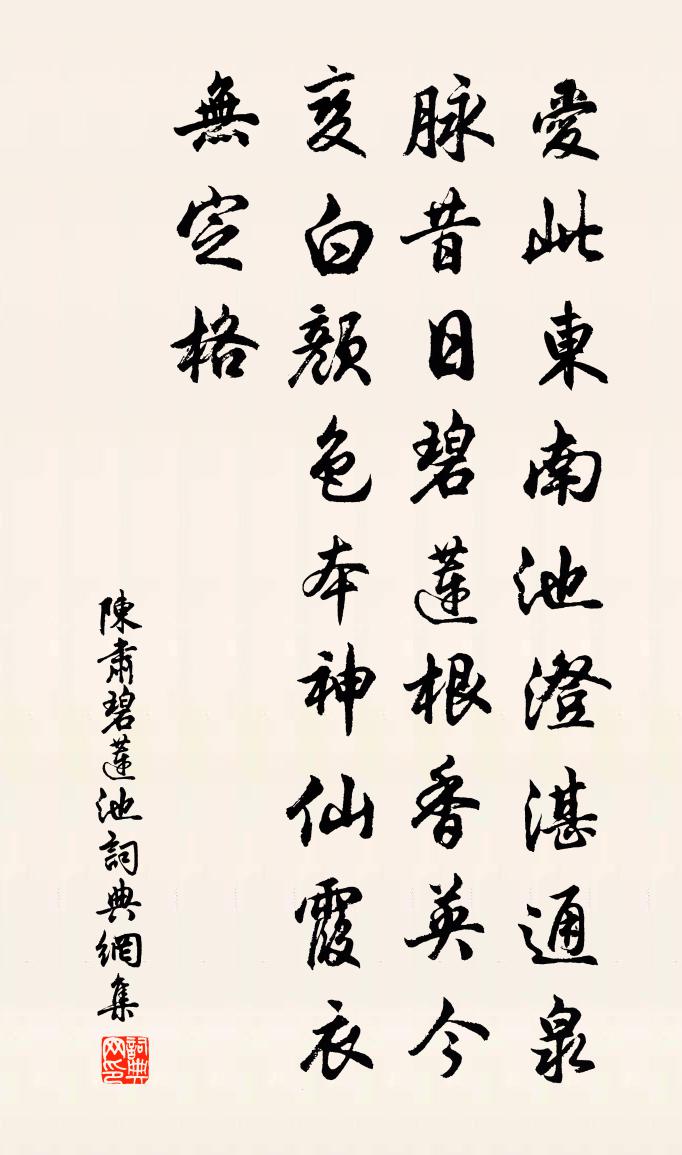 愛此東南池澄湛通泉
脉昔日碧蓮根香英今
変白顔色本神仙霞衣
無定格
陳肅碧蓮池詞典網集
詞典网印